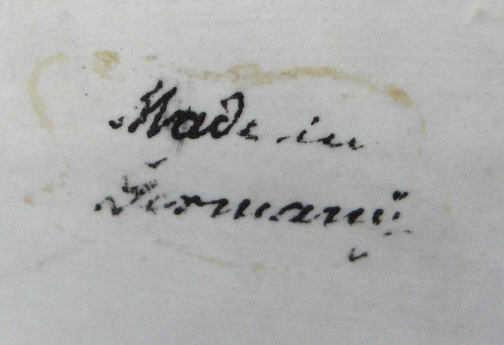 Made in
Germany